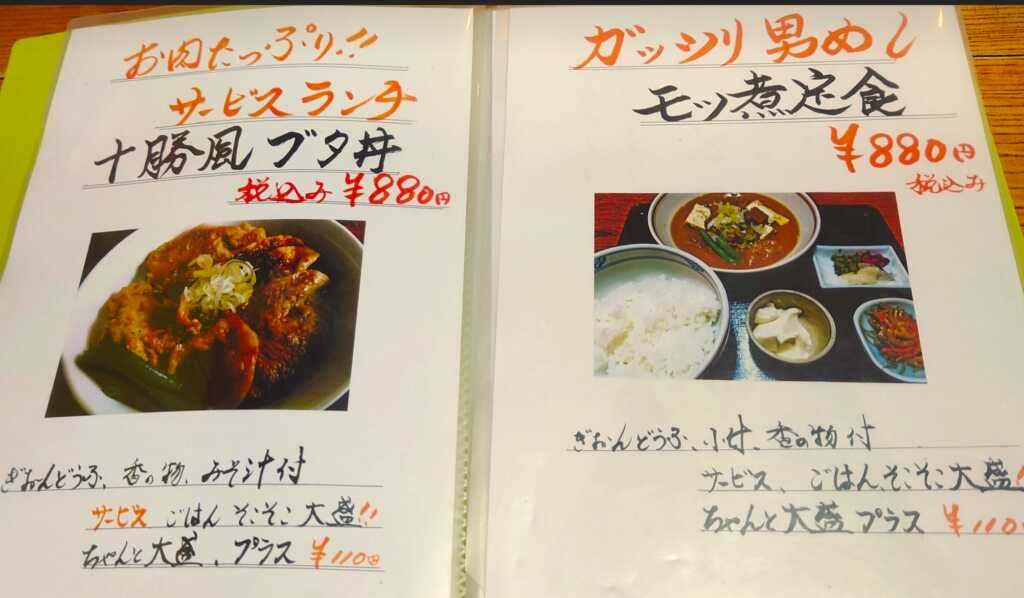 お肉たっぷり!!
サービスランチ
十勝風 ブタ丼
税込み ¥880円
ぎおんどうふ、香の物、みそ汁付
サービス ごはん そこそこ 大盛!!
ちゃんと大盛、プラス ¥110円
ガッシリ 男めし
モツ煮定食
¥880円
税込み
ぎおんどうふ、小付、香の物付
サービス、ごはん、そこそこ大盛!!
ちゃんと大盛 プラス ¥110